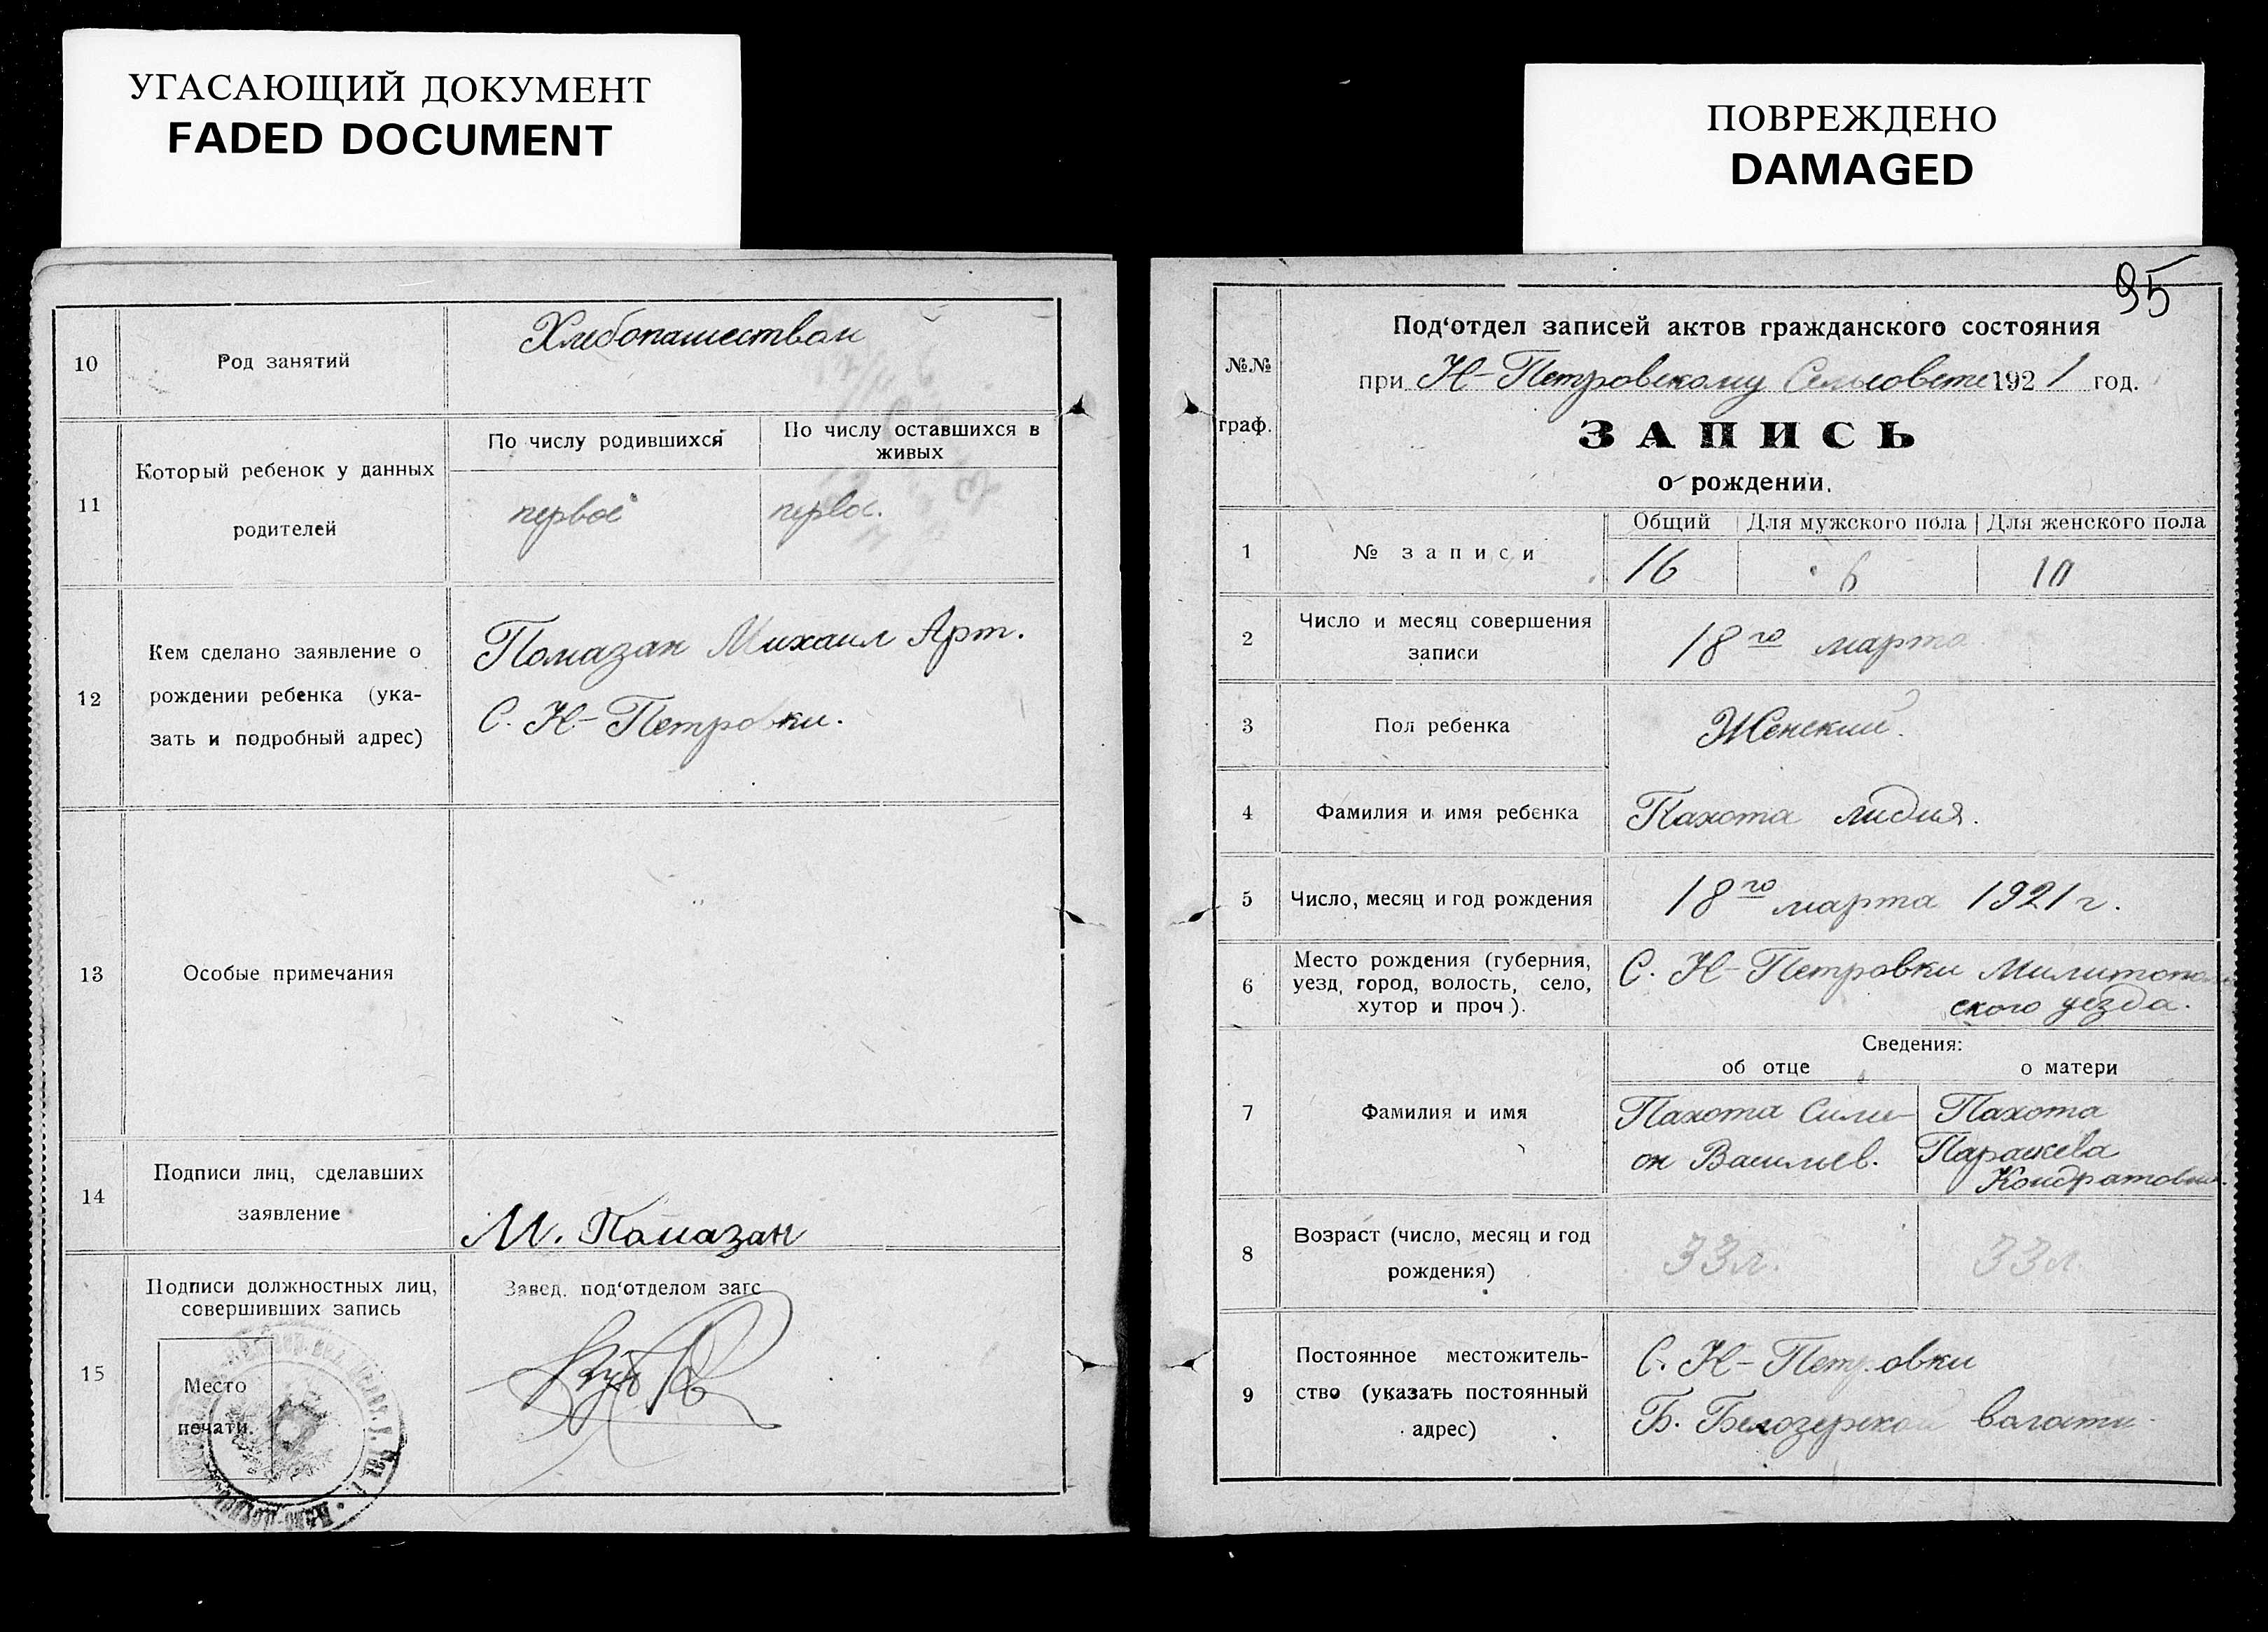 УГАСАЮЩИЙ ДОКУМЕНТ
FADED DOCUMENT
ПОВРЕЖДЕНО
DAMAGED
10
Род занятий
Хлебопашеством
11
Который ребенок у данных
родителей
По числу родившихся
По числу оставшихся в
живых
первое
первое.
12
Кем сделано заявление о
рождении ребенка (ука-
зать и подробный адрес)
Помазан Михаил Арт.
С. Н-Петровки.
13
Особые примечания
14
Подписи лиц, сделавших
заявление
М. Помазан
15
Подписи должностных лиц,
совершивших запись
Место
печати.
Завед. под‘отделом загс
95
№№
граф.
Под‘отдел записей актов гражданского состояния
при Н-Петровскому Сельсовете 1921 год.
ЗАПИСЬ
о рождении.
1
№ записи
Общий
Для мужского пола
Для женского пола
16
6
10
2
Число и месяц совершения
записи
18го марта
3
Пол ребенка
Женский.
4
Фамилия и имя ребенка
Пахота лидия.
5
Число, месяц и год рождения
18го марта 1921 г.
6
Место рождения (губерния,
уезд, город, волость, село,
хутор и проч.).
С. Н-Петровки Милитополь
ского уезда.
Сведения:
об отце
о матери
7
Фамилия и имя
Пахота Симе-
он Васильев.
Пахота
Параскева
Кондратовна.
8
Возраст (число, месяц и год
рождения)
33 л.
33 л.
9
Постоянное местожитель-
ство (указать постоянный
адрес)
С. Н-Петровки
Б. Белозерской валости